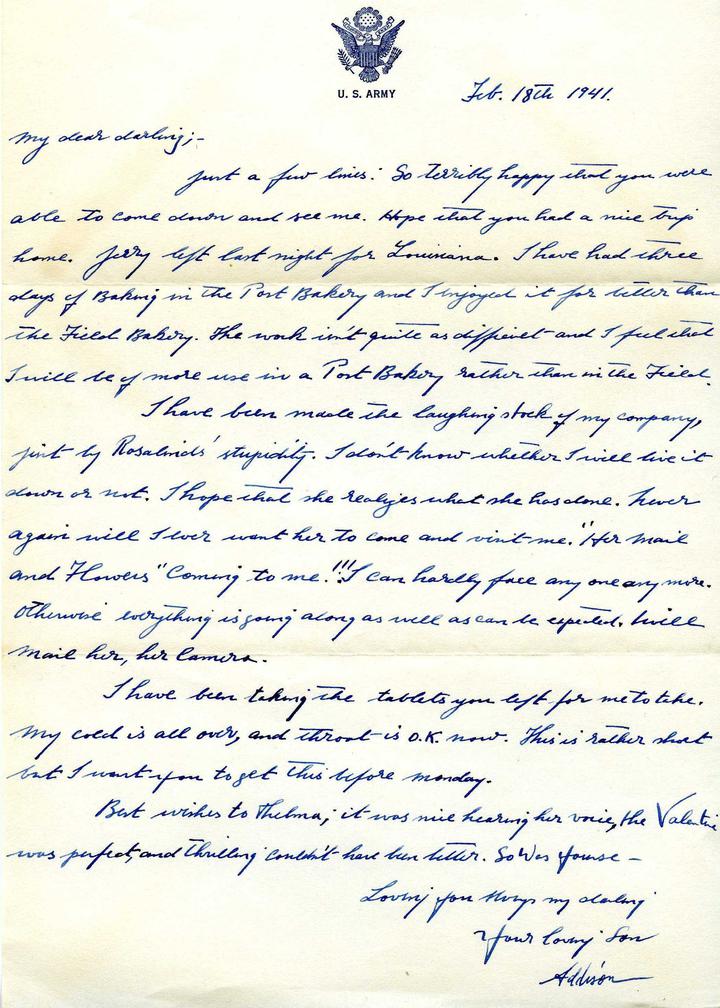 U. S. ARMY
Feb. 18th 1941.
My dear darling;-
Just a few lines: So terribly happy that you were
able to come down and see me. Hope that you had a nice trip
home. Jerry left last night for Louisiana. I have had three
days of Baking in the Post Bakery and I enjoyed it far better than
the Field Bakery. The work isn't quite as difficult and I feel that
I will be of more use in a Post Bakery rather than in the Field.
I have been made the laughing stock of my company,
just by Rosalinds' stupidity. I don't know whether I will live it
down or not. I hope that she realizes what she has done. Never
again will I ever want her to come and visit me. "Her Mail
and Flowers" Coming to me!!! I can hardly face any one any more.
Otherwise everything is going along as well as can be expected. Will
Mail her, her Camera.
I have been taking the tablets you left for me to take.
My cold is all over, and throat is O.K. now. This is rather short
but I want you to get this before Monday.
Best wishes to Thelma; it was nice hearing her voice, the Valentine
was perfect, and thrilling couldn't have been better. So Was yourse -
Loving you always my darling
Your loving Son
Addison